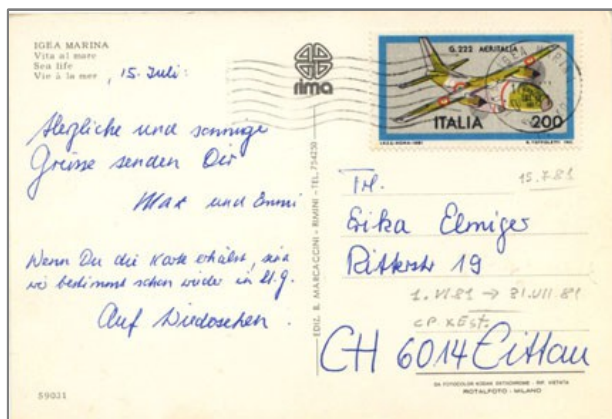 IGEA MARINA
Vita al mare
Sea life
Vie à la mer
, 15. Juli.
Herzliche und sonnige
Grüsse senden Dir
Max und Emmi
Wenn Du die Karte erhälst, sind
wir bestimmt schon wieder in
Auf Wiedersehen.
59031
rima
EDIZ. R. MARCACCINI - RIMINI - TEL. 754250
G. 222 AERITALIA
ITALIA 200
I.P.Z.S. ROMA - 1981
15.7.81
Frl.
Erika Elmiger
Ritterstr 19
1. VI 81 → 31. VII 81
CP. x Est.
CH 6014 Littau
DA FOTOCOLOR KODAK EKTACHROME - RIP. VIETATA
ROTALFOTO - MILANO